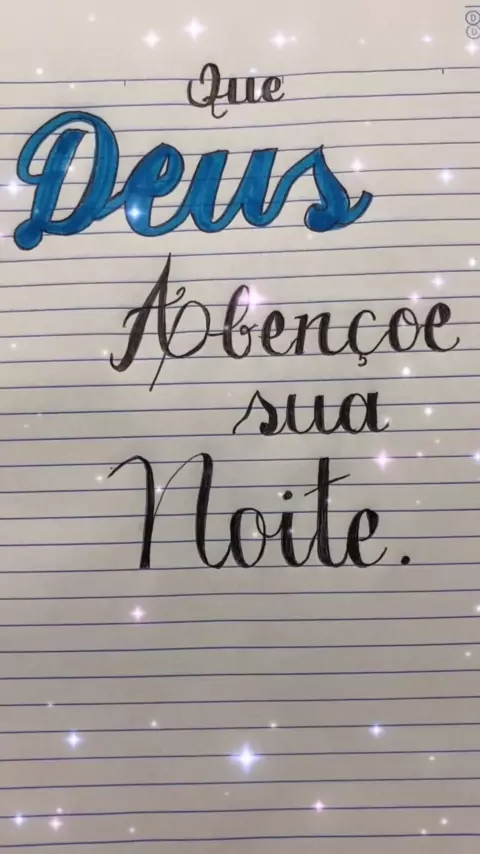 Que
Deus
Abençoe
sua
Noite.